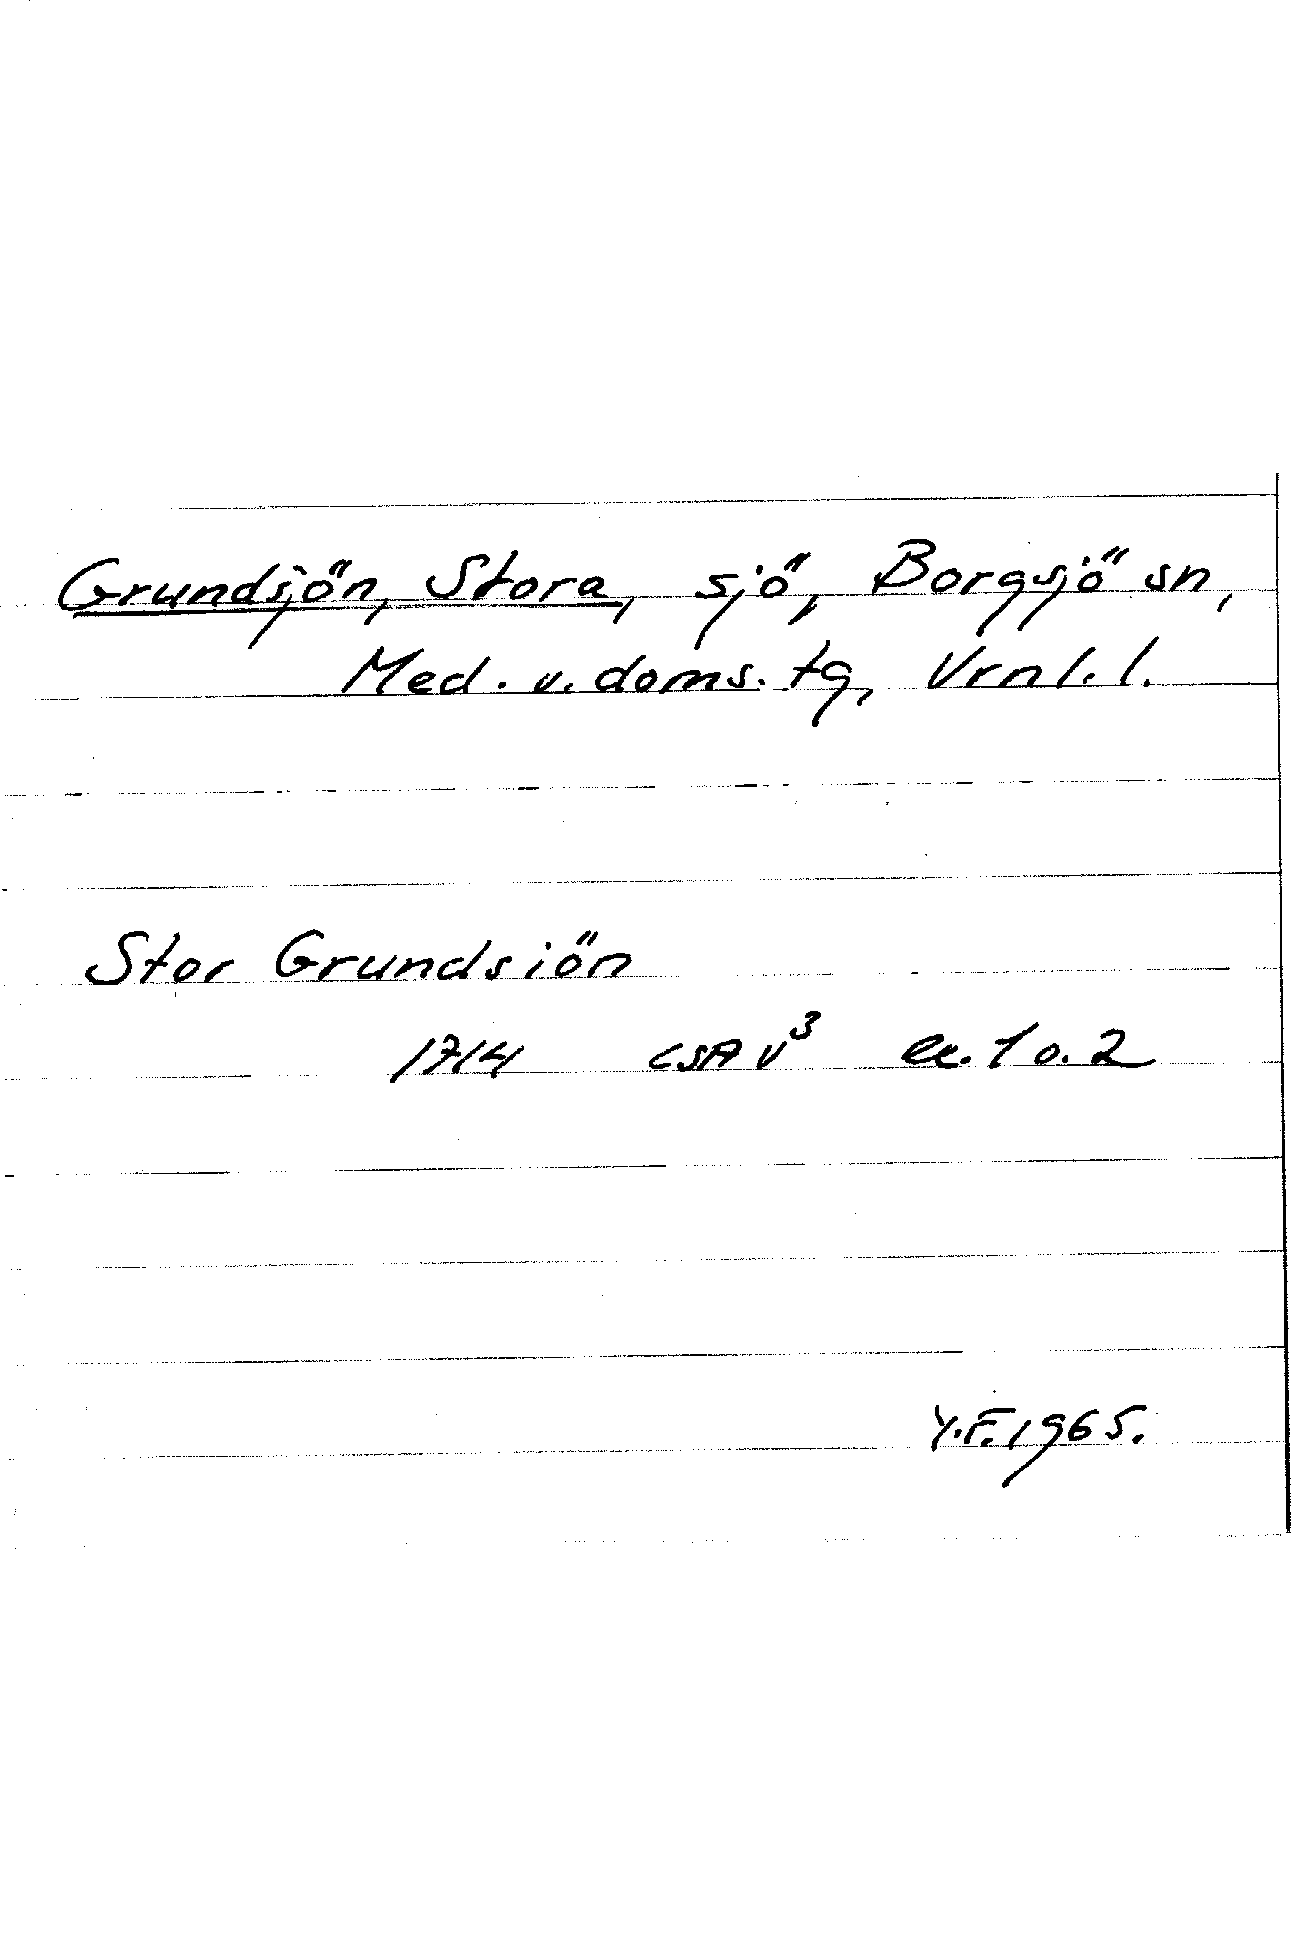 Grundsjön, Stora, sjö, Borgsjö sn,
Med. v. doms. tg, Vrnl. l.
Stor Grundsiön
1714 CSA V³ ex. 1 o. 2
Y.F. 1965.